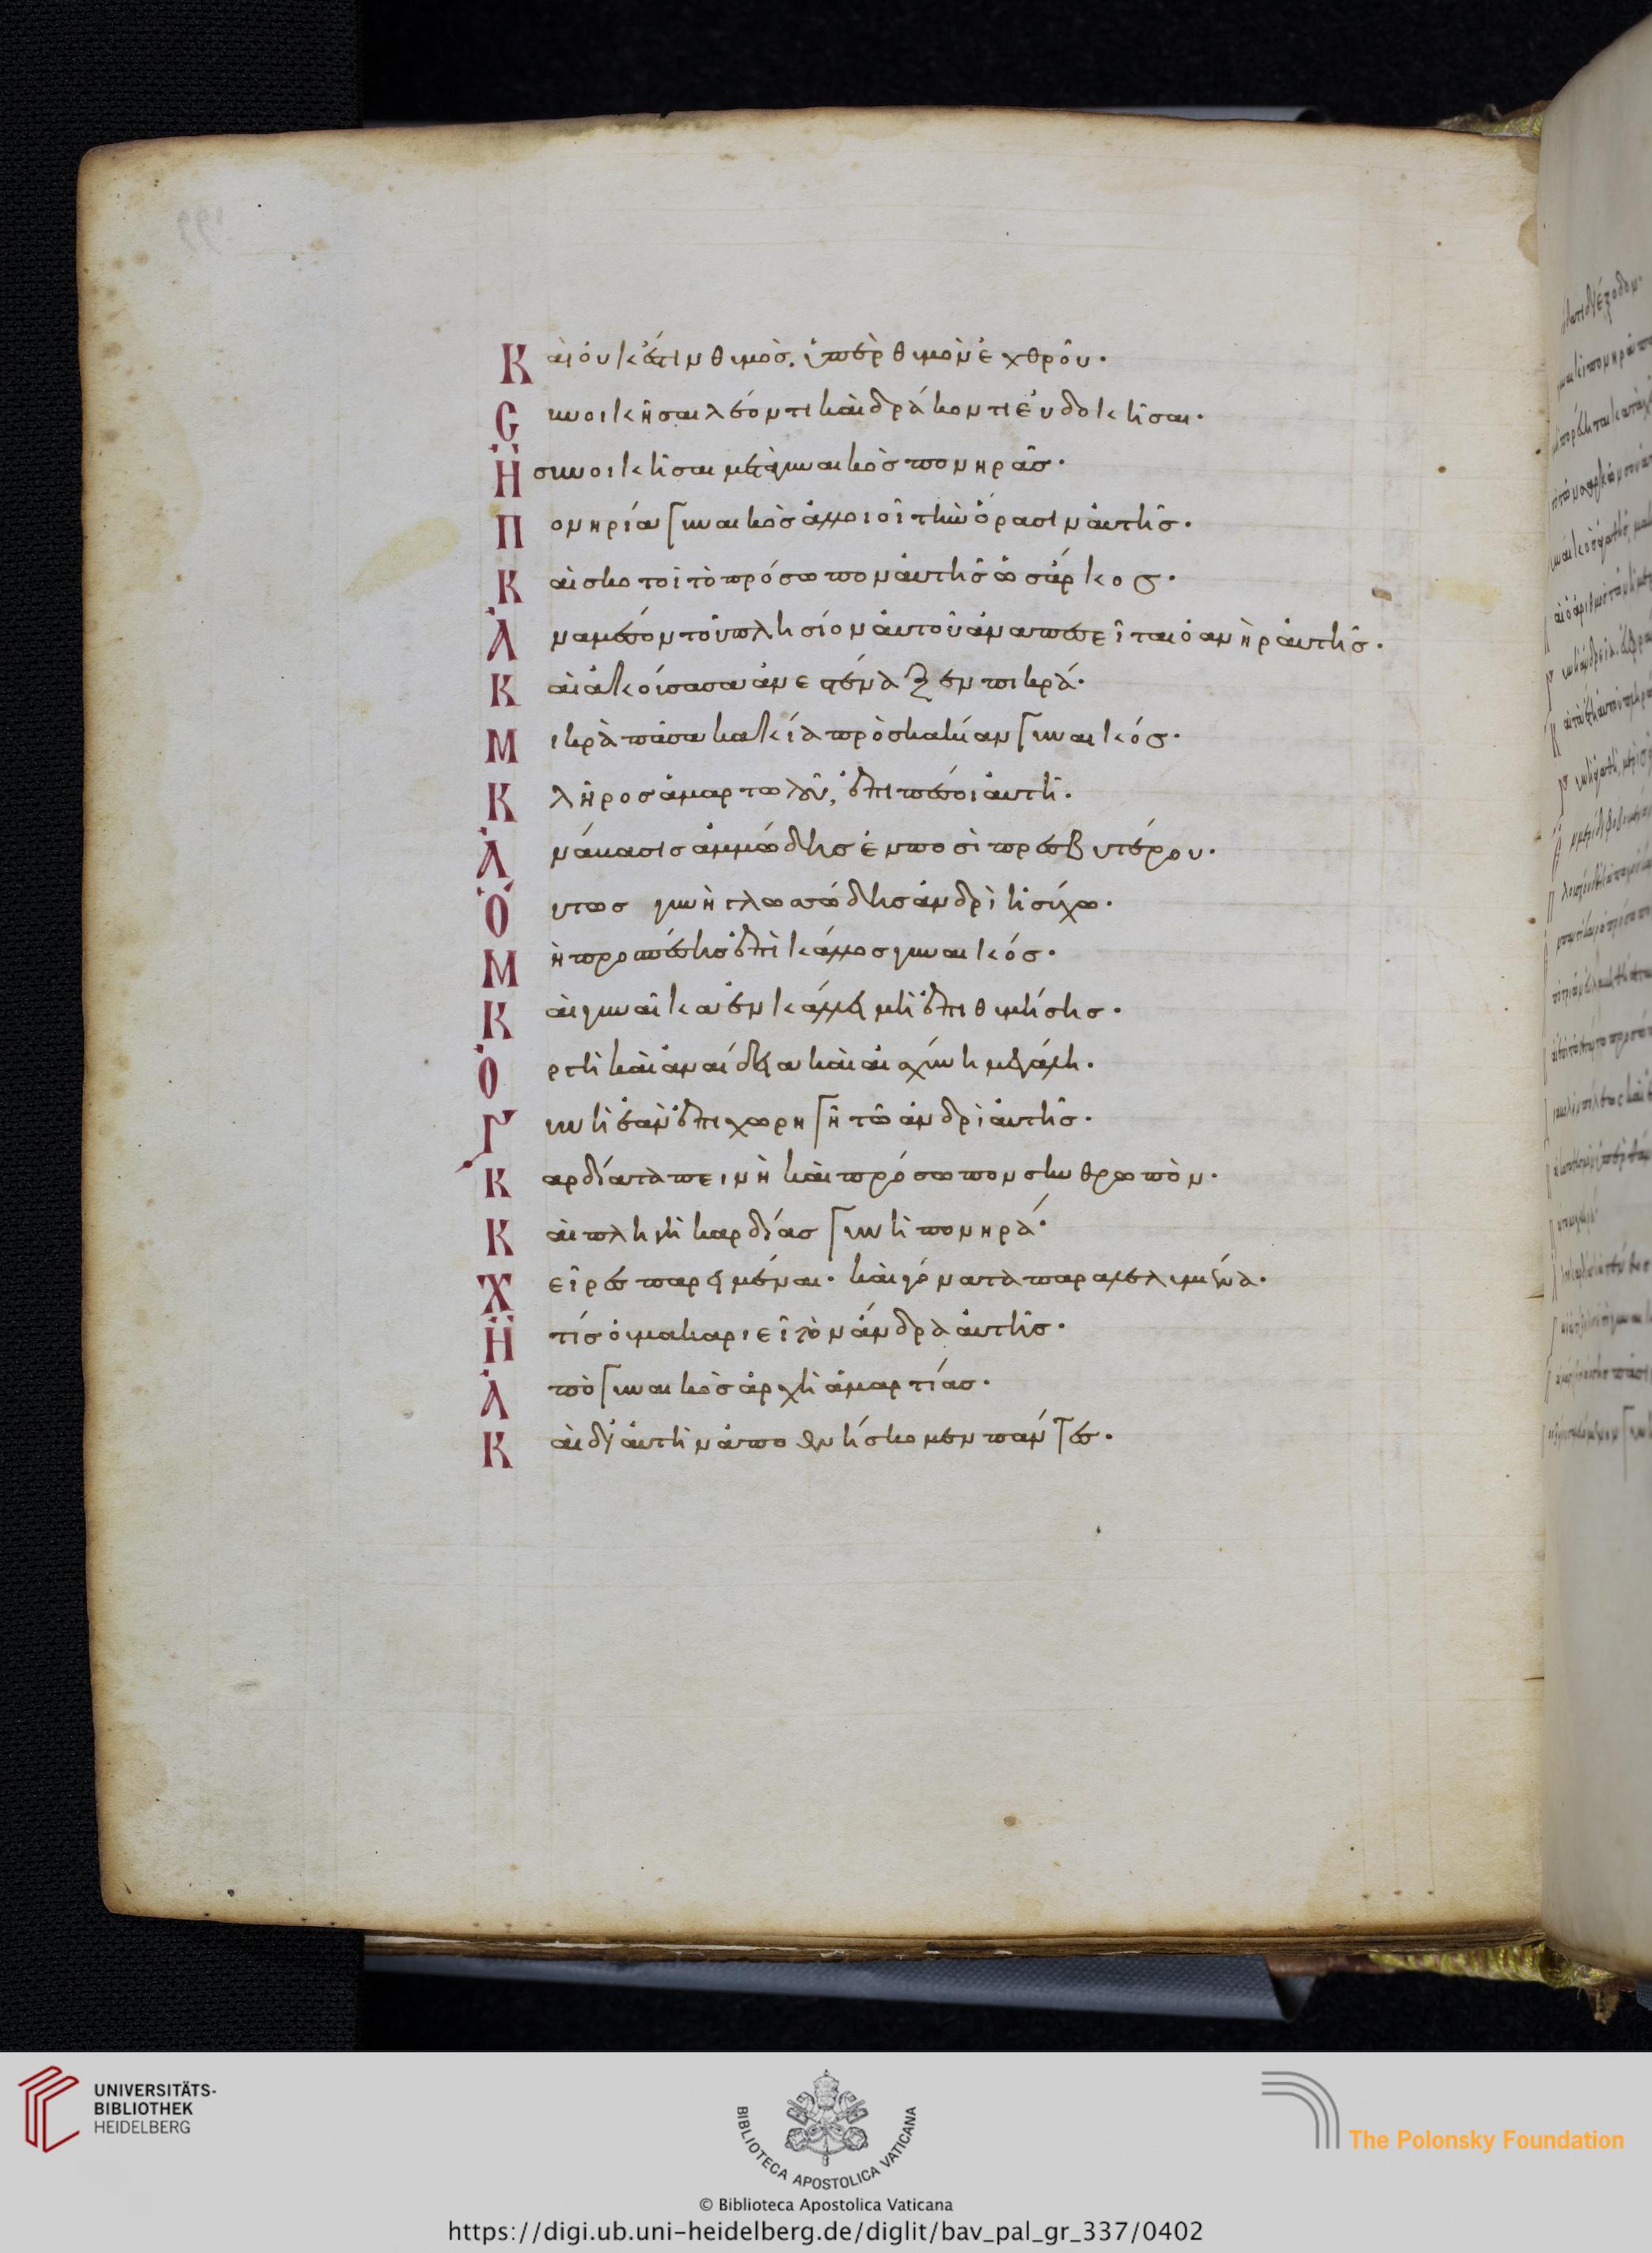 Καὶ οὐκ ἔστιν θυμὸς, ὑπὲρ θυμὸν ἐχθροῦ·
Συνοικῆσαι λέοντι καὶ δράκοντι εὐδοκῆσαι·
Ἢ συνοικῆσαι μετὰ γυναικὸς πονηρᾶς·
Πονηρία γυναικὸς ἀλλοιοῖ τὴν ὅρασιν αὐτῆς·
Καὶ σκοτοῖ τὸ πρόσωπον αὐτῆς ὡς ἄρκος·
Ἀναμέσον τοῦ πλησίον αὐτοῦ ἀναπεσεῖται ὁ ανὴρ αὐτῆς·
Καὶ ἀκούσασα ἀνεστέναζεν πικρά·
Μικρὰ πᾶσα κακία πρὸς κακίαν γυναικός·
Κλῆρος ἁμαρτωλοῦ, ἐπιπέσοι αὐτῆ·
Ἀνάβασις ἀμμώδης ἐν ποσὶ πρεσβυτέρου·
Οὕτως γυνὴ γλωσσώδης ἀνδρὶ ἡσύχω·
Μὴ προσπέσης ἐπὶ κάλλος γυναικός·
Καὶ γυναῖκα ἐν κάλλει μὴ ἐπιθυμήσης·
Ὀργὴ καὶ ἀναίδεια καὶ αἰσχύνη μεγάλη·
Γυνὴ ἐὰν ἐπιχωρηγῆ τῶ ἀνδρὶ αὐτῆς·
Καρδία ταπεινὴ καὶ πρόσωπον σκυθρωπὸν·
Καὶ πληγὴ καρδίας γυνὴ πονηρά·
Χεῖρες παρειμέναι· καὶ γόνατα παραλελυμένα·
Ἥτις οὐ μακαριεῖ τὸν ἄνδρα αὐτῆς·
Ἀπὸ γυναικὸς ἀρχὴ ἁμαρτίας·
Καὶ δι' αὐτὴν ἀποθνήσκομεν πάντες·
UNIVERSITÄTS-
BIBLIOTHEK
HEIDELBERG
BIBLIOTECA APOSTOLICA VATICANA
The Polonsky Foundation
© Biblioteca Apostolica Vaticana
https://digi.ub.uni-heidelberg.de/diglit/bav_pal_gr_337/0402